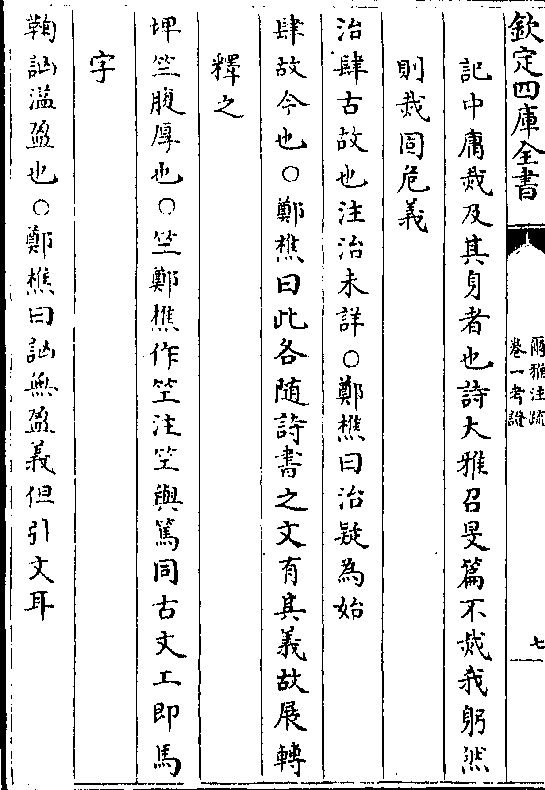 欽定四庫全書
爾雅注疏
卷一考證
七
記中庸烖及其身者也詩大雅召旻篇不烖我躬然
則烖固危義
治肆古故也注治未詳○鄭樵曰治疑為始
肆故今也○鄭樵曰此各随詩書之文有其義故展轉
釋之
埤竺腹厚也○竺鄭樵作笁注笁與篤同古文工即馬
字
鞫訩溢盈也○鄭樵曰訩無盈義但引文耳